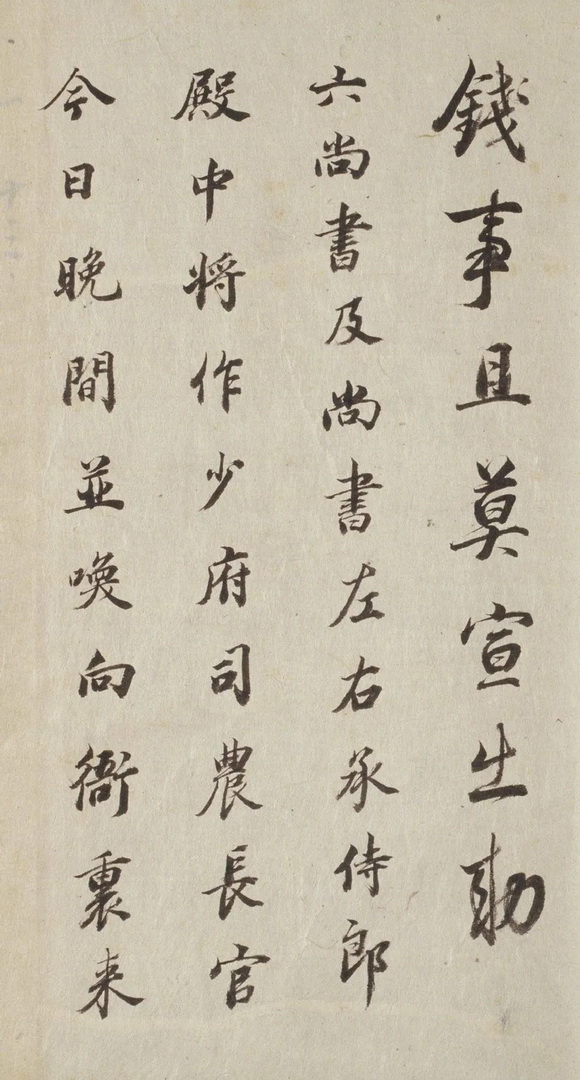 錢事且莫宣出勅
六尚書及尚書左右承侍郎
殿中将作少府司農長官
今日晚間並喚向衙裏来